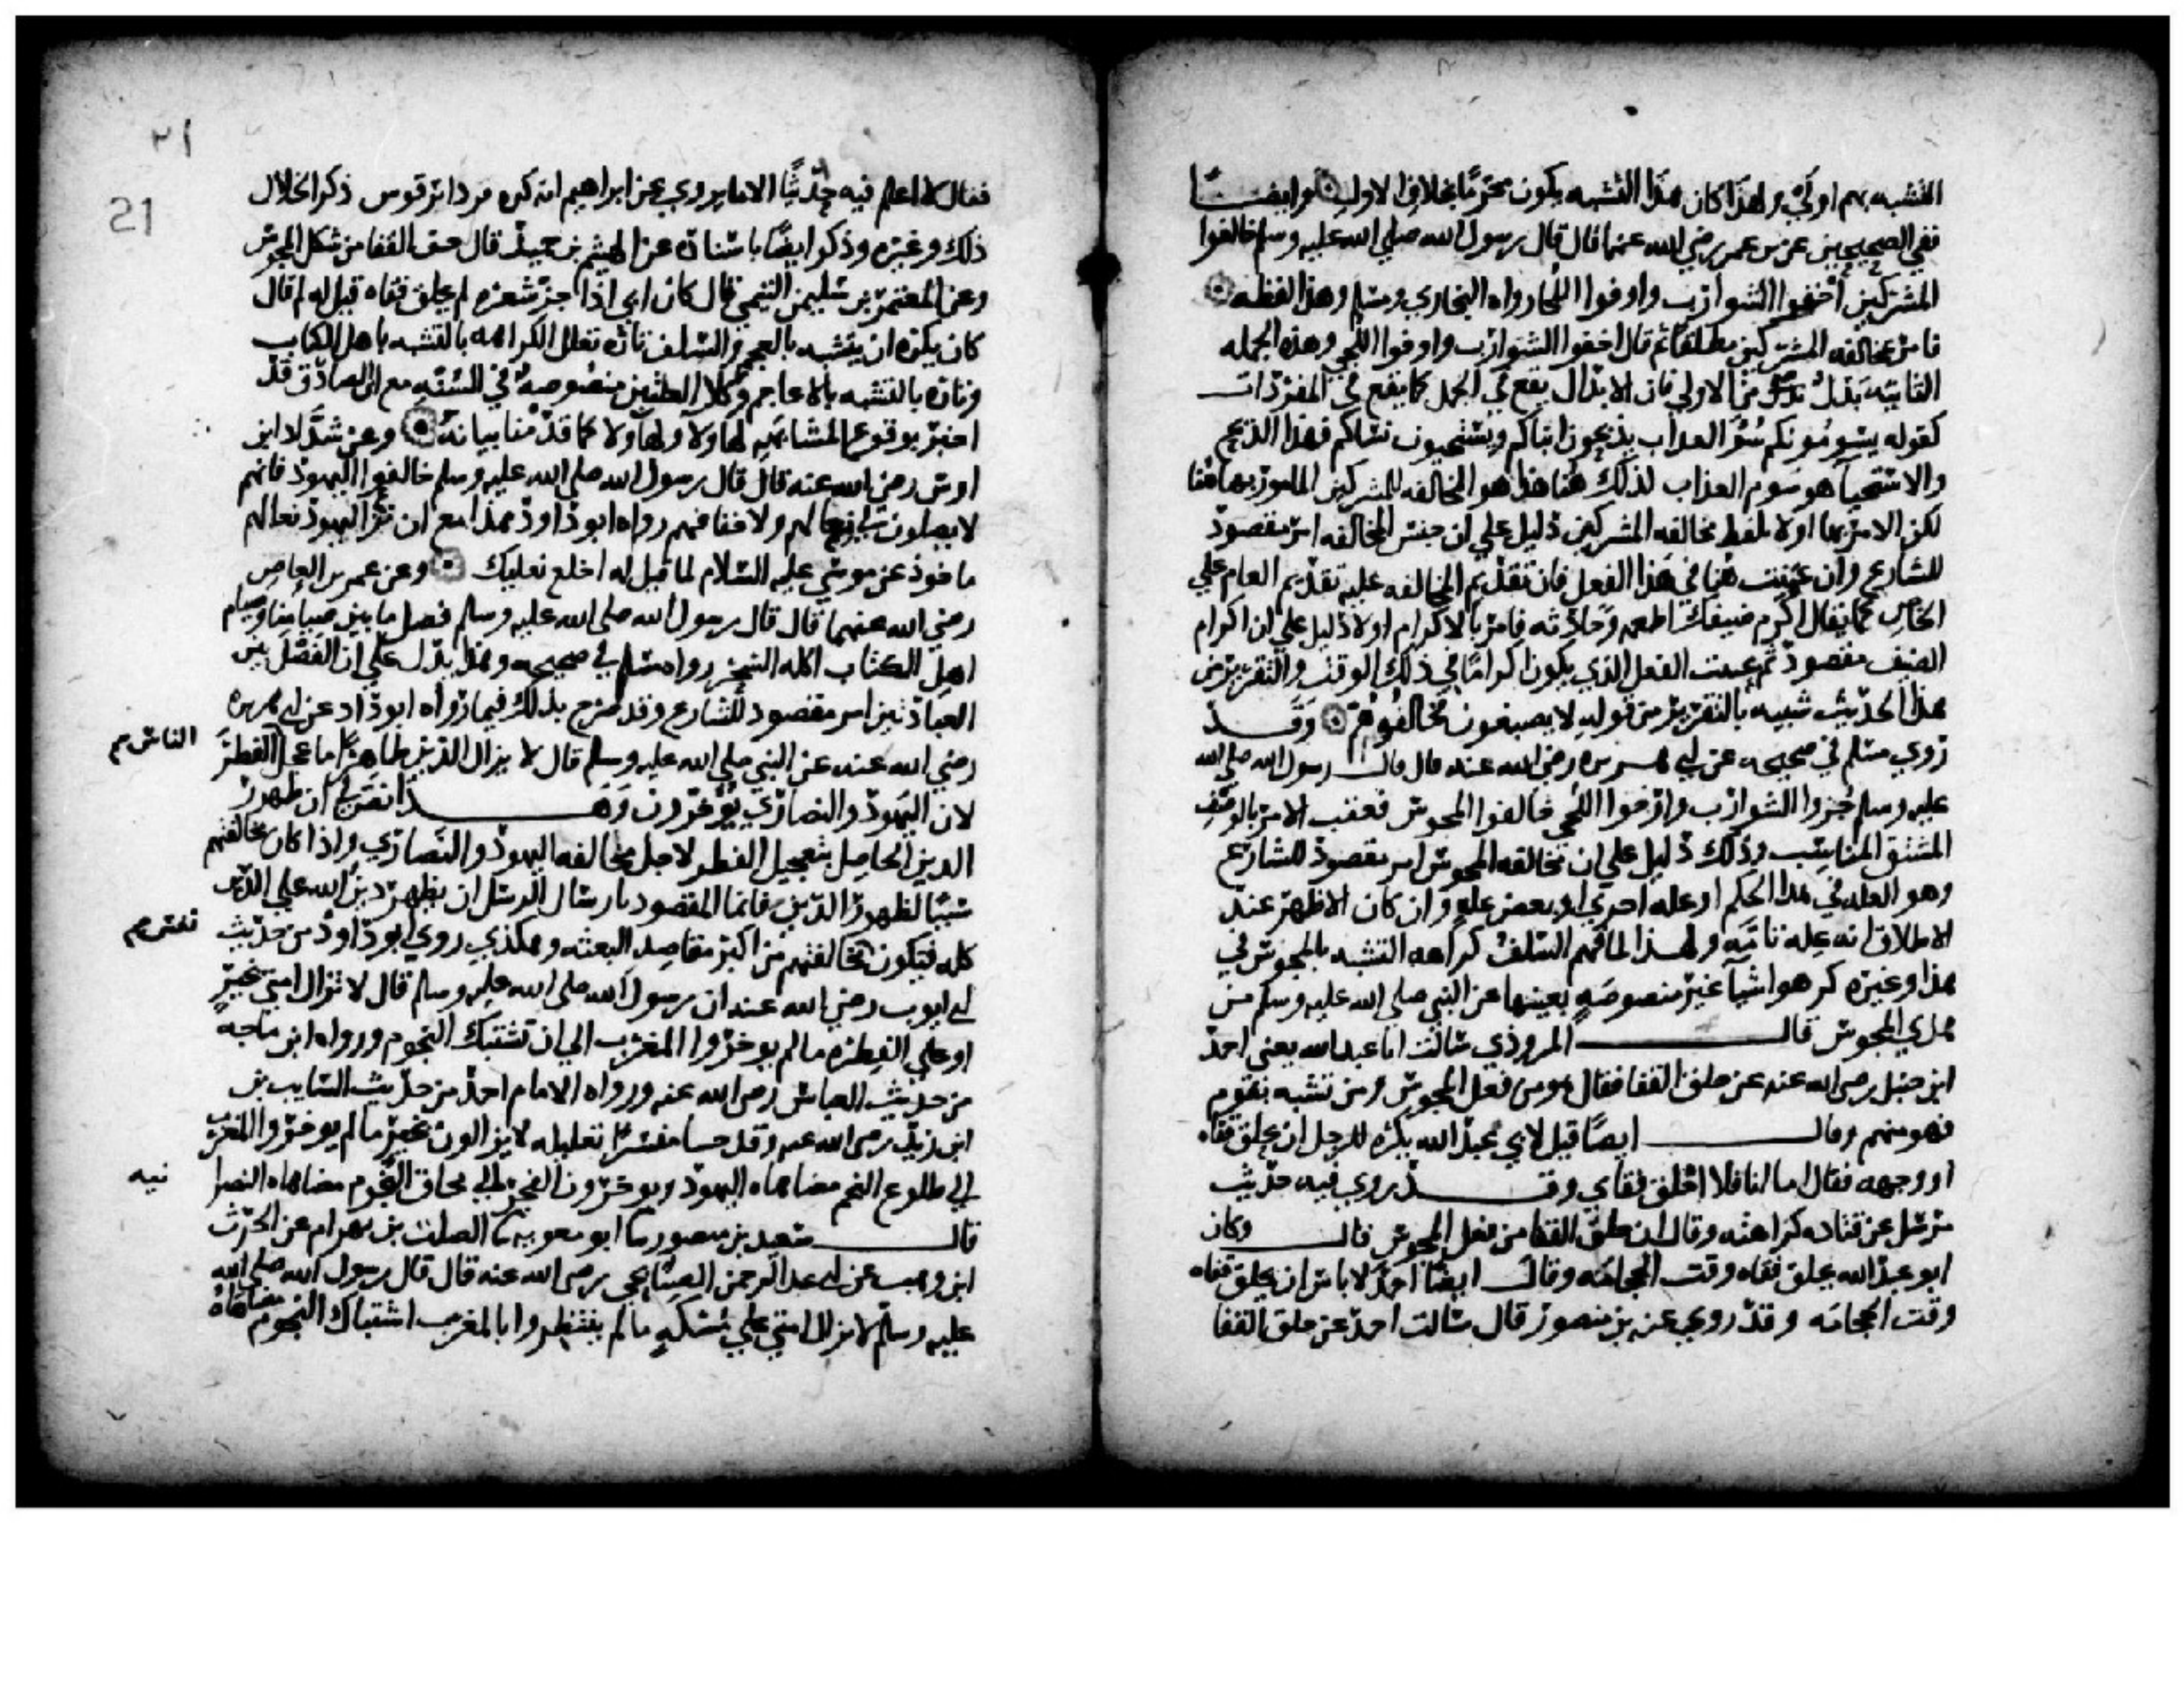 التشبه بهم اولي ولهذا كان هذا التشبه يكون محرما بخلاف الاول وايضــا
ففي الصحيحين عن بن عمر رضي الله عنهما قال قال رسول الله صلي الله عليه وسلم خالفوا
المشركين احفوا الشوارب واوفوا اللحا رواه البخاري ومسلم وهذا لفظه
فامر بمخالفه المشركين مطلقا ثم قال احفوا الشوارب واوفوا اللحي وهذه الجمله
الثانيه بدل من الاولي فان الابدال يقع في الجمل كما يقع في المفردات
كقوله يسومونكم سوء العداب يذبحون ابناكم ويستحيون نساكم فهذا الذبح
والاستحيا هو سوم العذاب لذلك هنا هذا هو المخالفه للمشركين المامور بها هنا
لكن الامر بها اولا بلفظ مخالفه المشركين دليل علي ان جنس المخالفه امر مقصود
للشارع وان عينت هنا في هذا الفعل فان تقديم المخالفه عليه تقديم العام علي
الخاص كما يقال اكرم ضيفك اطعمه وحادثه فامر بالاكرام اولا دليل علي ان اكرام
الضيف مقصود ثم عينت الفعل الذي يكون اكراما في ذلك الوقت والتقرير من
هذا الحديث شبيه بالتقرير من قوله لا يصبغون فخالفوهم وقــد
روي مسلم في صحيحه عن ابي هريره رضي الله عنه قال قال رسول الله صلي الله
عليه وسلم جزوا الشوارب وارخوا اللحي خالفوا المجوس فعقب الامر بالوصف
المشتق المناسب وذلك دليل علي ان مخالفه المجوس امر مقصود للشارع
وهو العله في هذا الحكم او عله اخري او بعض عله وان كان الاظهر عند
الاطلاق انه عله تامه ولهذا لما فهم السلف كراهه التشبه بالمجوس في
هذا وغيره كرهوا اشيا غير منصوصه بعينها عن النبي صلي الله عليه وسلم من
هدي المجوس قالــ المروذي سالت ابا عبد الله يعني احمد
ابن حنبل رضي الله عنه عن حلق القفا فقال هو من فعل المجوس ومن تشبه بقوم
فهو منهم وقالــ ايضا قيل لابي عبد الله يكره للرجل ان يحلق قفاه
او وجهه فقال اما انا فلا احلق قفاي وقــد روي فيه حديث
مرسل عن قتاده كراهته وقال ان حلق القفا من فعل المجوس قالــ وكان
ابو عبد الله يحلق قفاه وقت الحجامه وقال ايضا احمد لا باس ان يحلق قفاه
وقت الحجامه وقد روي عنه بن منصور قال سالت احمد عن حلق القفا
٢١
21
فقال لا اعلم فيه حديثا الا ما يروي عن ابراهيم انه كره قوس ذكر الخلال
ذلك وغيره وذكر ايضا باسناده عن الهيثم بن حميد قال حف القفا من شكل المجوس
وعن المعتمر بن سليمن التيمي قال كان ابي اذا جز شعره لم يحلق قفاه قيل له لم قال
كان يكره ان يتشبه بالعجم والسلف تاره تعلل الكراهه بالتشبه باهل الكتاب
وتاره بالتشبه بالاعاجم وكلا العلتين منصوصه في السنه مع ان الصادق قد
اخبر بوقوع المشابهه لهاولا ولهاولا كما قدمنا بيانه وعن شداد ابن
اوس رضي الله عنه قال قال رسول الله صلي الله عليه وسلم خالفوا اليهود فانهم
لا يصلون في نعالهم ولا خفافهم رواه ابو داود هذا مع ان نزع اليهود نعالهم
ماخوذ عن موسي عليه السلام لما قيل له اخلع نعليك وعن عمر بن العاص
رضي الله عنهما قال قال رسول الله صلي الله عليه وسلم فصل ما بين صيامنا وصيام
اهل الكتاب اكله السحر رواه مسلم في صحيحه وهذا يدل علي ان الفصل بين
العبادتين امر مقصود للشارع وقد صرح بذلك فيما رواه ابو داد عن ابي هريره
رضي الله عنه عن النبي صلي الله عليه وسلم قال لا يزال الدين ظاهرا ما عجل الفطر الناس
لان اليهود والنصاري يؤخرون وهــذا نص في ان ظهور
الدين الحاصل بتعجيل الفطر لاجل مخالفه اليهود والنصاري واذا كان مخالفتهم
سببا لظهور الدين فانما المقصود بارسال الرسل ان يظهر دين الله علي الدين
كله فتكون مخالفتهم من اكبر مقاصد البعثه وهكذي روي ابو داود من حديث
ابي ايوب رضي الله عنه ان رسول الله صلي الله عليه وسلم قال لا تزال امتي بخير
او علي الفطره ما لم يوخروا المغرب الي ان تشتبك النجوم ورواه ابن ماجه
من حديث العباس رضي الله عنه ورواه الامام احمد من حديث السايب بن
ابن زيد رضي الله عنه وقد جا مفسرا تعليله لا يزالون بخير ما لم يوخروا المغرب
الي طلوع النجم مضاهاه اليهود ويوخرون الفجر الي محاق النجوم مضاهاه النصرا نيه
قالــ سعيد بن منصور ثنا ابو معويه ثنا الصلت بن بهرام عن الحرث
ابن وهب عن ابي عبد الرحمن الصنابحي رضي الله عنه قال قال رسول الله صلي الله
عليه وسلم لا يزال امتي علي مسكه ما لم ينتظروا بالمغرب اشتباك النجوم مضاهاه